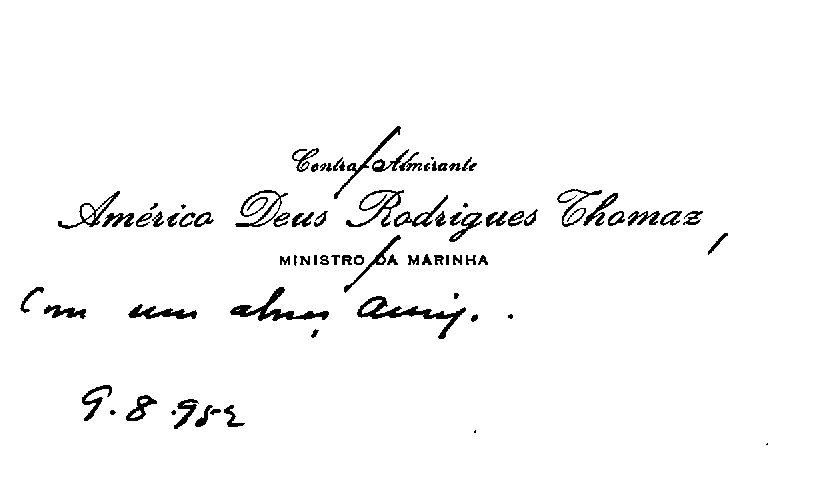 Contra-Almirante
Américo Deus Rodrigues Thomaz,
MINISTRO DA MARINHA
Com um abraço amig.
9.8.952